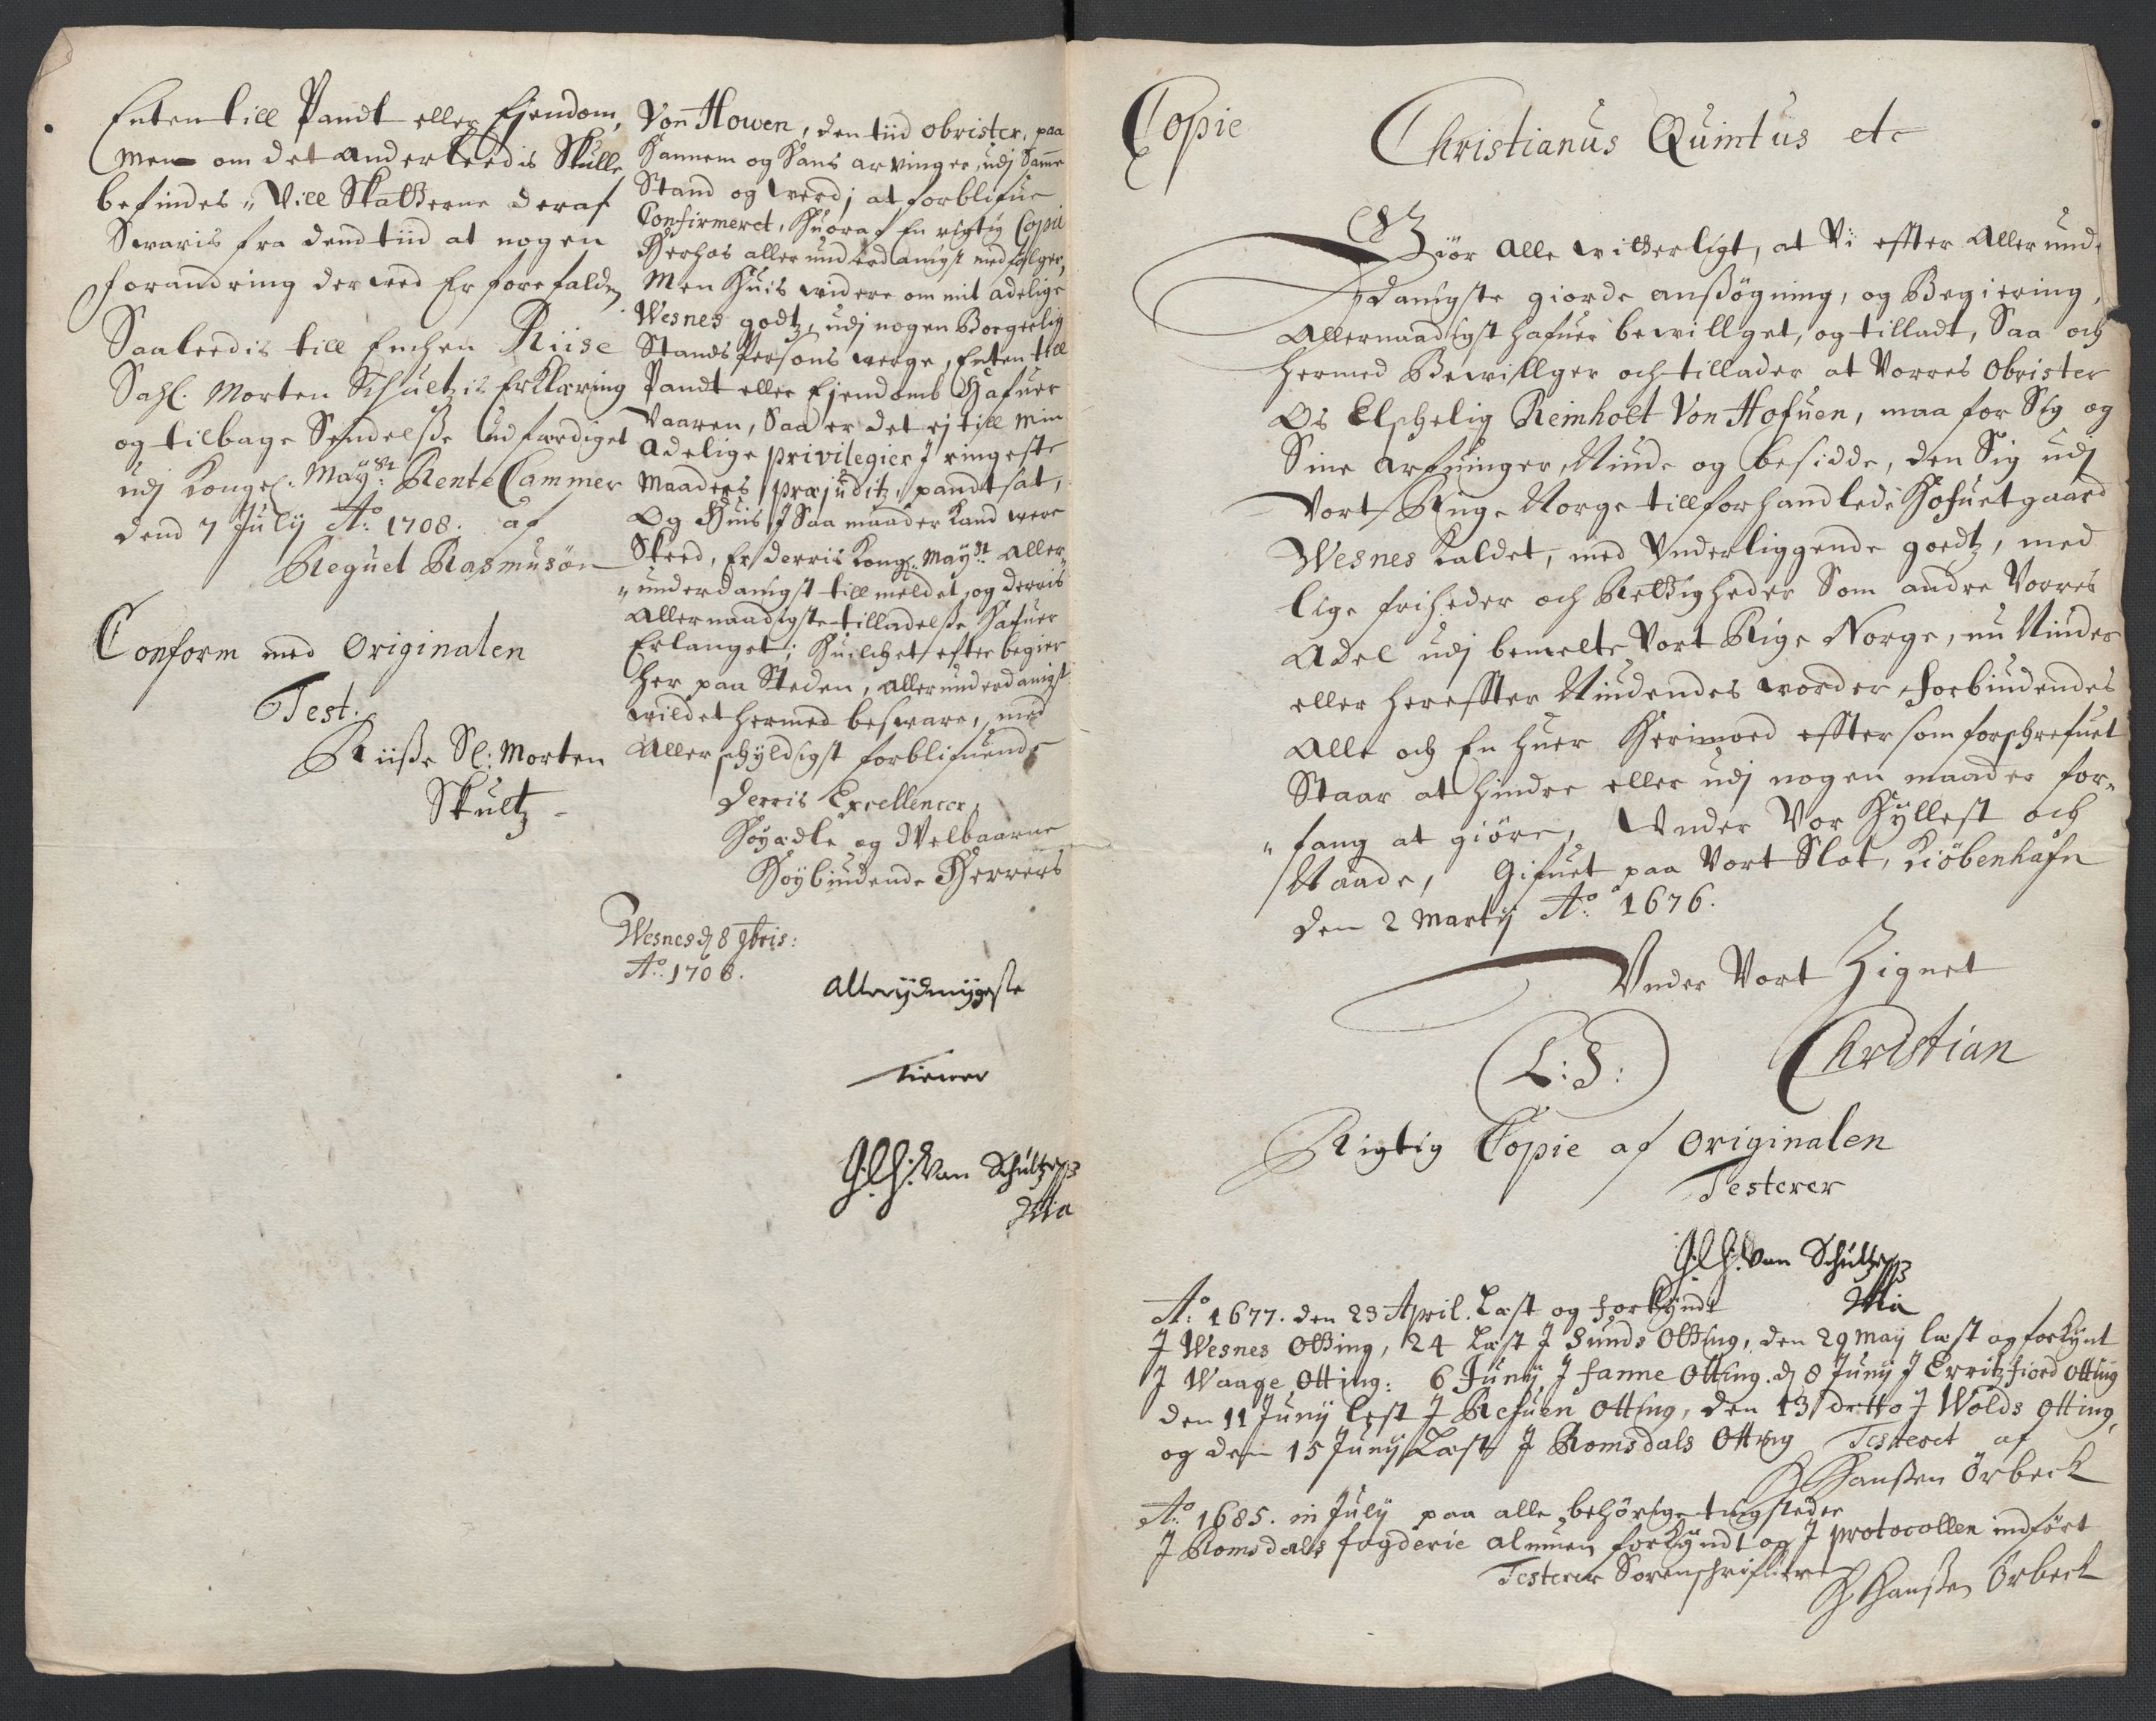 Enten till Pandt eller Ejendom,
Men om det anderleedis Skulle
befindes, Vill Skatterne deraf
Swaris fra dend tiid at nogen
forandring derwed Er forefalden
Saaleedis till Enchen Riise
Sahl. Morten Schultzis Erklæring
og tilbage Sendelsse udfærdiget
udj Kongel. Mayst. Rente Cammer
dend 7 July Ao. 1708. af
Reguel Rasmusøn
Conform med Originalen
Test.
Riisse Sl: Morten
Skultz
Von Howen, den tiid obrister, paa
hannem og hans arvinger, udj Samme
Stand og werdj at forblifue
Confirmeret, huoraf En rigtig Copii
herhos allerunderdanigst medfølger,
Men huis widere om mit adelige
Wesnes godtz, udj nogen Borgerlig
Stands Persons werge, Enten till
Pandt eller Ejendomb hafuer
Vaaren, Saa er det ej till min
Adelige privilegier J ringeste
Maader præjuditz, pandtsat,
Og huis J Saa maader kand were
Skeed, Er derris Kongl. Mayst. Aller
underdanigst till meldet, og derris
Allernaadigste tilladelsse hafuer
Erlanget; huilchet efter begier
her paa Steden, allerunderdanigst
wildet hermed besware, med
Allerschyldigst forblifuende
Derris Excellencer,
Høyædle og Welbaarne
Høybiudende Herrers
Wesnes d 8 9bris:
Ao. 1708.
Allerydmygeste
Tiener
J. C. H. Von Schultz
Mia
Copie
Christianus Quintus etc
Giör Alle witterligt, at Vi effter Allerund-
danigste giorde anssøgning, og Begiering,
Allernaadigst hafuer bewillget, og tilladt, Saa och
hermed Bewillger och tillader at Vorres Obrister
Os Elschelig Reinholt Von Hofuen, maa for Sig og
Sine Arfuinger, Niude og besidde, den Sig udj
Vort Rige Norge tillforhandlede Hofuetgaard
Wesnes kaldet, med Underliggende goedtz, med
lige friheder och Rettigheder Som andre Vorres
Adel udj bemelte Vort Rige Norge, nu Niuder
eller hereffter Niudendes worder, forbiudendes
Alle och En huer herimoed effter som forschrefuet
Staar at hindre eller udj nogen maader for-
fang at giöre, Under Vor hyllest och
Naade, Gifuet paa Vort Slot, Kiöbenhafn
den 2 Marty Ao. 1676.
Under Vort Zignet
L: S:
Christian
Rigtig Copie af Originalen
Testerer
J. C. H. Von Schultz
Mia
Ao. 1677. den 23 April. Læst og forkyndt
J Wesnes Otting, 24 Læst J Sunds Otting, den 29 May læst og forkynt
J Waage Otting: 6 Juny J fanne Otting. d 8 Juny J Erritzfiord Otting
den 11 Juny lest J Refuen Otting, den 13 ditto J Wolds Otting,
og den 15 Juny Læst J Romsdals Otting Testeret af
H Hanssen Örbeck
Ao. 1685. in July paa alle behørige tingsteder
J Romsdals fogderie almuen forkyndt og J protocollen indført
Testerer Sorenschrifuer
H Hanssen Örbeck